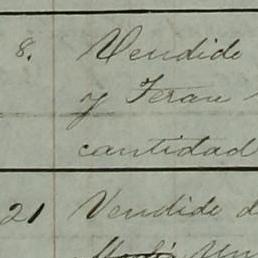 8. Vendido
y Feran
cantidad
21 Vendido d